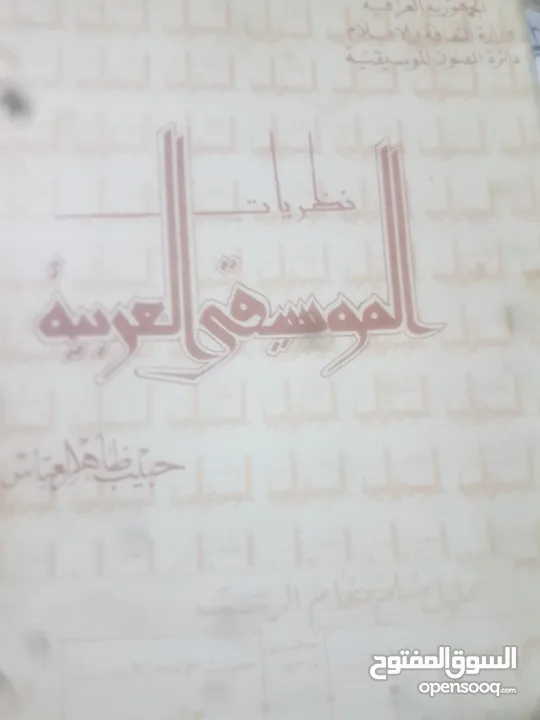 الجمهورية العراقية
وزارة الثقافة والاعلام
دائرة الفنون الموسيقية
نظريات
الموسيقى العربية
حبيب ظاهر العباس
السوق المفتوح
opensooq.com